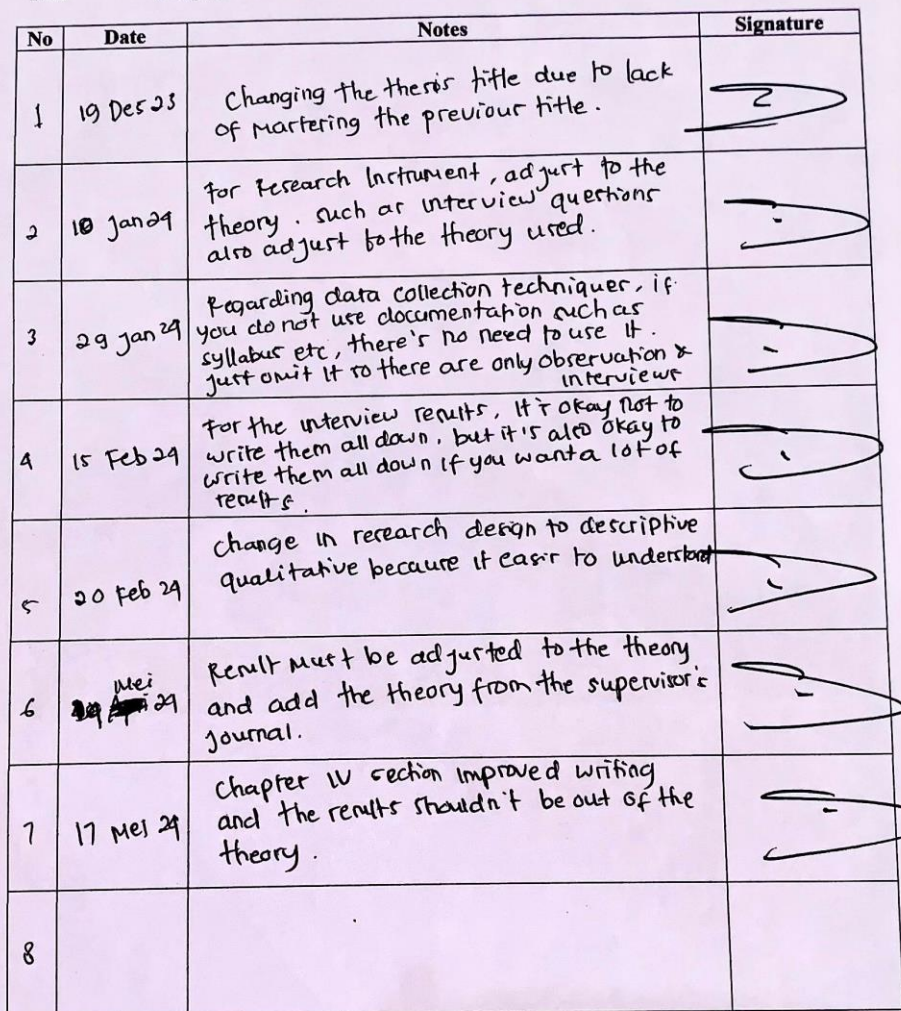 No Date Notes Signature
1 19 Des 23 Changing the thesis title due to lack
of martering the previour title.
2 10 Jan 24 For Research Instrument, adjust to the
theory. such as interview questions
also adjust to the theory used.
3 29 Jan 24 Regarding data collection techniques, if
you do not use documentation such as
syllabus etc, there's no need to use it.
Just omit it so there are only observation &
interviews
4 15 Feb 24 For the interview results, It's okay not to
write them all down, but it's also okay to
write them all down if you want a lot of
results.
5 20 Feb 24 Change in research design to descriptive
qualitative because it easir to understand
6 Mei 24 Result must be adjusted to the theory
and add the theory from the supervisor's
journal.
7 17 Mei 24 Chapter IV section improved writing
and the results shouldn't be out of the
theory.
8